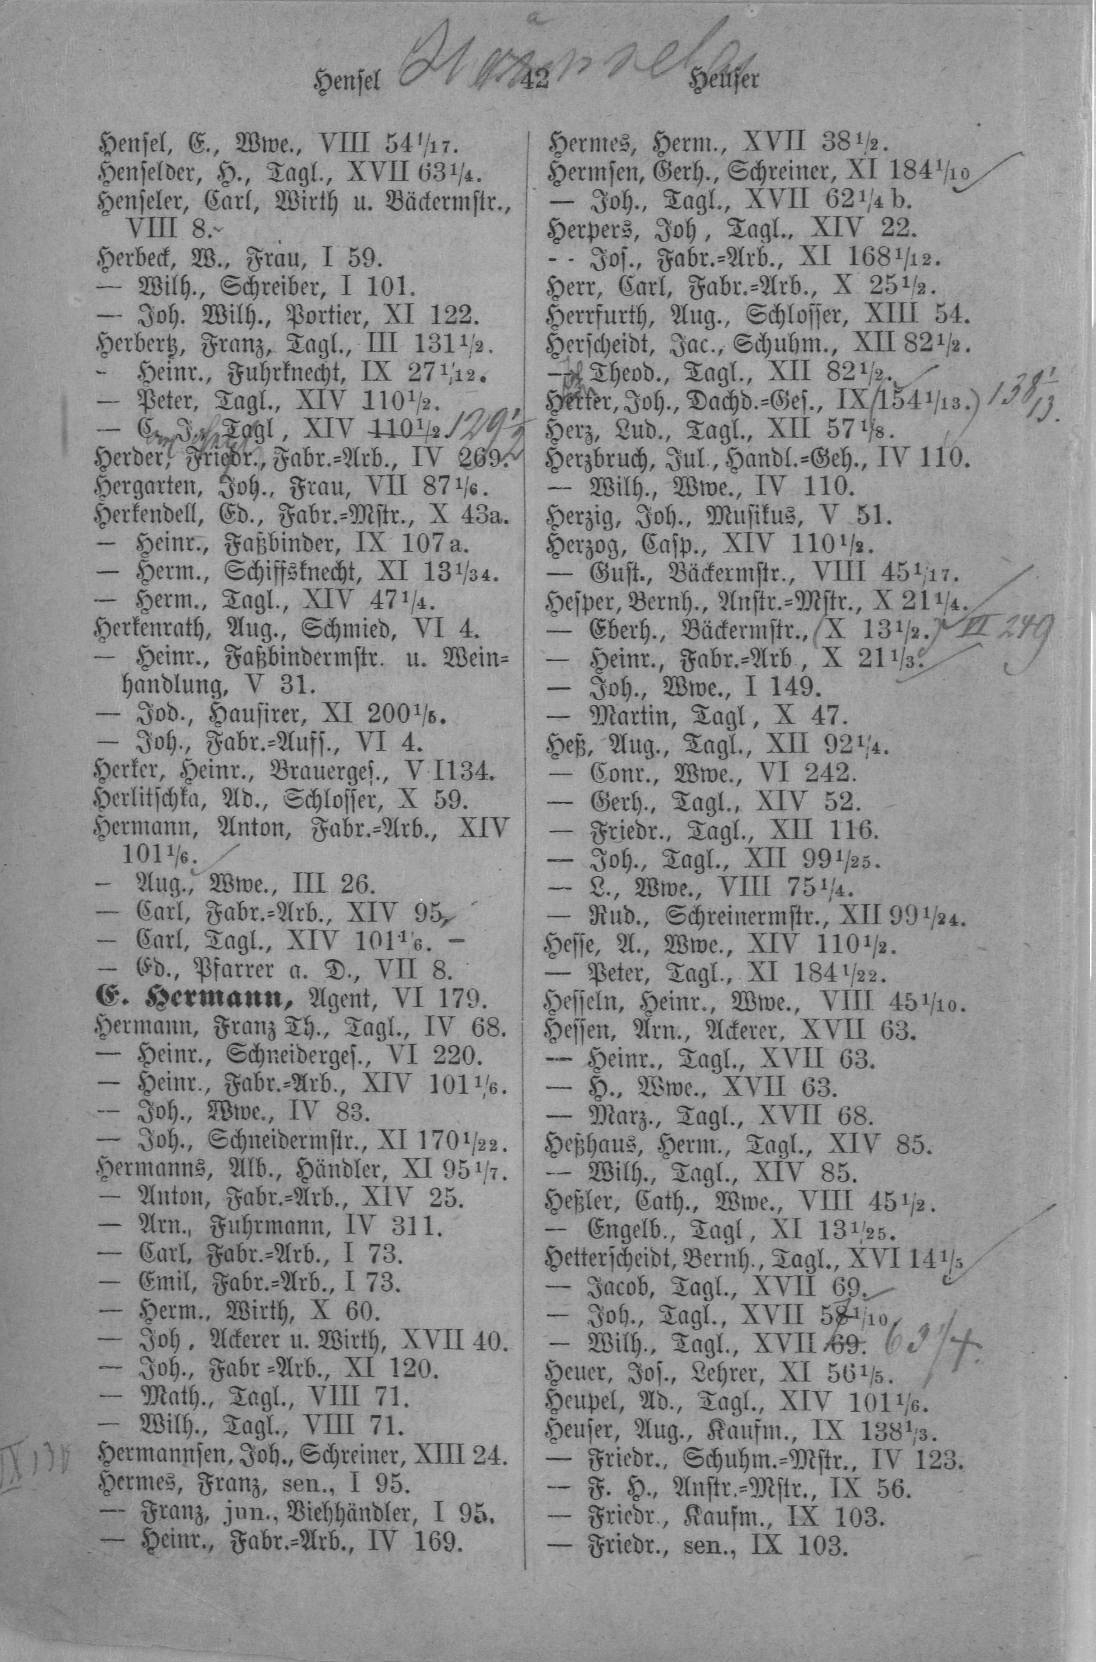 Hensel 42 Heuser
Hensel, E., Wwe., VIII 54 1/17.
Henselder, H., Tagl., XVII 63 1/4.
Henseler, Carl, Wirth u. Bäckermstr.,
VIII 8.
Herbeck, W., Frau, I 59.
— Wilh., Schreiber, I 101.
— Joh. Wilh., Portier, XI 122.
Herbertz, Franz, Tagl., III 131 1/2.
- Heinr., Fuhrknecht, IX 27 1/12.
— Peter, Tagl., XIV 110 1/2.
— C. Tagl, XIV 110 1/2. 129 1/2
Herder, Friedr., Fabr.=Arb., IV 269.
Hergarten, Joh., Frau, VII 87 1/6.
Herkendell, Ed., Fabr.=Mstr., X 43a.
— Heinr., Faßbinder, IX 107a.
— Herm., Schiffsknecht, XI 13 1/34.
— Herm., Tagl., XIV 47 1/4.
Herkenrath, Aug., Schmied, VI 4.
— Heinr., Faßbindermstr. u. Wein=
handlung, V 31.
— Jod., Hausirer, XI 200 1/5.
— Joh., Fabr.=Aufs., VI 4.
Herker, Heinr., Brauerges., V I134.
Herlitschka, Ad., Schlosser, X 59.
Hermann, Anton, Fabr.=Arb., XIV
101 1/6.
— Aug., Wwe., III 26.
— Carl, Fabr.=Arb., XIV 95,
— Carl, Tagl., XIV 101 1/6. —
— Ed., Pfarrer a. D., VII 8.
E. Hermann, Agent, VI 179.
Hermann, Franz Th., Tagl., IV 68.
— Heinr., Schneiderges., VI 220.
— Heinr., Fabr.=Arb., XIV 101 1/6.
— Joh., Wwe., IV 83.
— Joh., Schneidermstr., XI 170 1/22.
Hermanns, Alb., Händler, XI 95 1/7.
— Anton, Fabr.=Arb., XIV 25.
— Arn., Fuhrmann, IV 311.
— Carl, Fabr.=Arb., I 73.
— Emil, Fabr.=Arb., I 73.
— Herm., Wirth, X 60.
— Joh, Ackerer u. Wirth, XVII 40.
— Joh., Fabr=Arb., XI 120.
— Math., Tagl., VIII 71.
— Wilh., Tagl., VIII 71.
Hermannsen, Joh., Schreiner, XIII 24.
Hermes, Franz, sen., I 95.
— Franz, jun., Viehhändler, I 95.
— Heinr., Fabr.=Arb., IV 169.
Hermes, Herm., XVII 38 1/2.
Hermsen, Gerh., Schreiner, XI 184 1/10
— Joh., Tagl., XVII 62 1/4 b.
Herpers, Joh, Tagl., XIV 22.
-- Jos., Fabr.=Arb., XI 168 1/12.
Herr, Carl, Fabr.=Arb., X 25 1/2.
Herrfurth, Aug., Schlosser, XIII 54.
Herscheidt, Jac., Schuhm., XII 82 1/2.
— Theod., Tagl., XII 82 1/2.
Herker, Joh., Dachd.=Ges., IX (154 1/13.) 138 1/13.
Herz, Lud., Tagl., XII 57 1/8.
Herzbruch, Jul., Handl.=Geh., IV 110.
— Wilh., Wwe., IV 110.
Herzig, Joh., Musikus, V 51.
Herzog, Casp., XIV 110 1/2.
— Gust., Bäckermstr., VIII 45 1/17.
Hesper, Bernh., Anstr.=Mstr., X 21 1/4.
— Eberh., Bäckermstr., (X 13 1/2.) VI 249
— Heinr., Fabr.=Arb, X 21 1/3.
— Joh., Wwe., I 149.
— Martin, Tagl, X 47.
Heß, Aug., Tagl., XII 92 1/4.
— Conr., Wwe., VI 242.
— Gerh., Tagl., XIV 52.
— Friedr., Tagl., XII 116.
— Joh., Tagl., XII 99 1/25.
— L., Wwe., VIII 75 1/4.
— Rud., Schreinermstr., XII 99 1/24.
Hesse, A., Wwe., XIV 110 1/2.
— Peter, Tagl., XI 184 1/22.
Hesseln, Heinr., Wwe., VIII 45 1/10.
Hessen, Arn., Ackerer, XVII 63.
— Heinr., Tagl., XVII 63.
— H., Wwe., XVII 63.
— Marz., Tagl., XVII 68.
Heßhaus, Herm., Tagl., XIV 85.
— Wilh., Tagl., XIV 85.
Heßler, Cath., Wwe., VIII 45 1/2.
— Engelb., Tagl, XI 13 1/25.
Hetterscheidt, Bernh., Tagl., XVI 14 1/5
— Jacob, Tagl., XVII 69.
— Joh., Tagl., XVII 58 1/10
— Wilh., Tagl., XVII 69. 63 1/4.
Heuer, Jos., Lehrer, XI 56 1/5.
Heupel, Ad., Tagl., XIV 101 1/6.
Heuser, Aug., Kaufm., IX 138 1/3.
— Friedr., Schuhm.=Mstr., IV 123.
— F. H., Anstr.=Mstr., IX 56.
— Friedr., Kaufm., IX 103.
— Friedr., sen., IX 103.